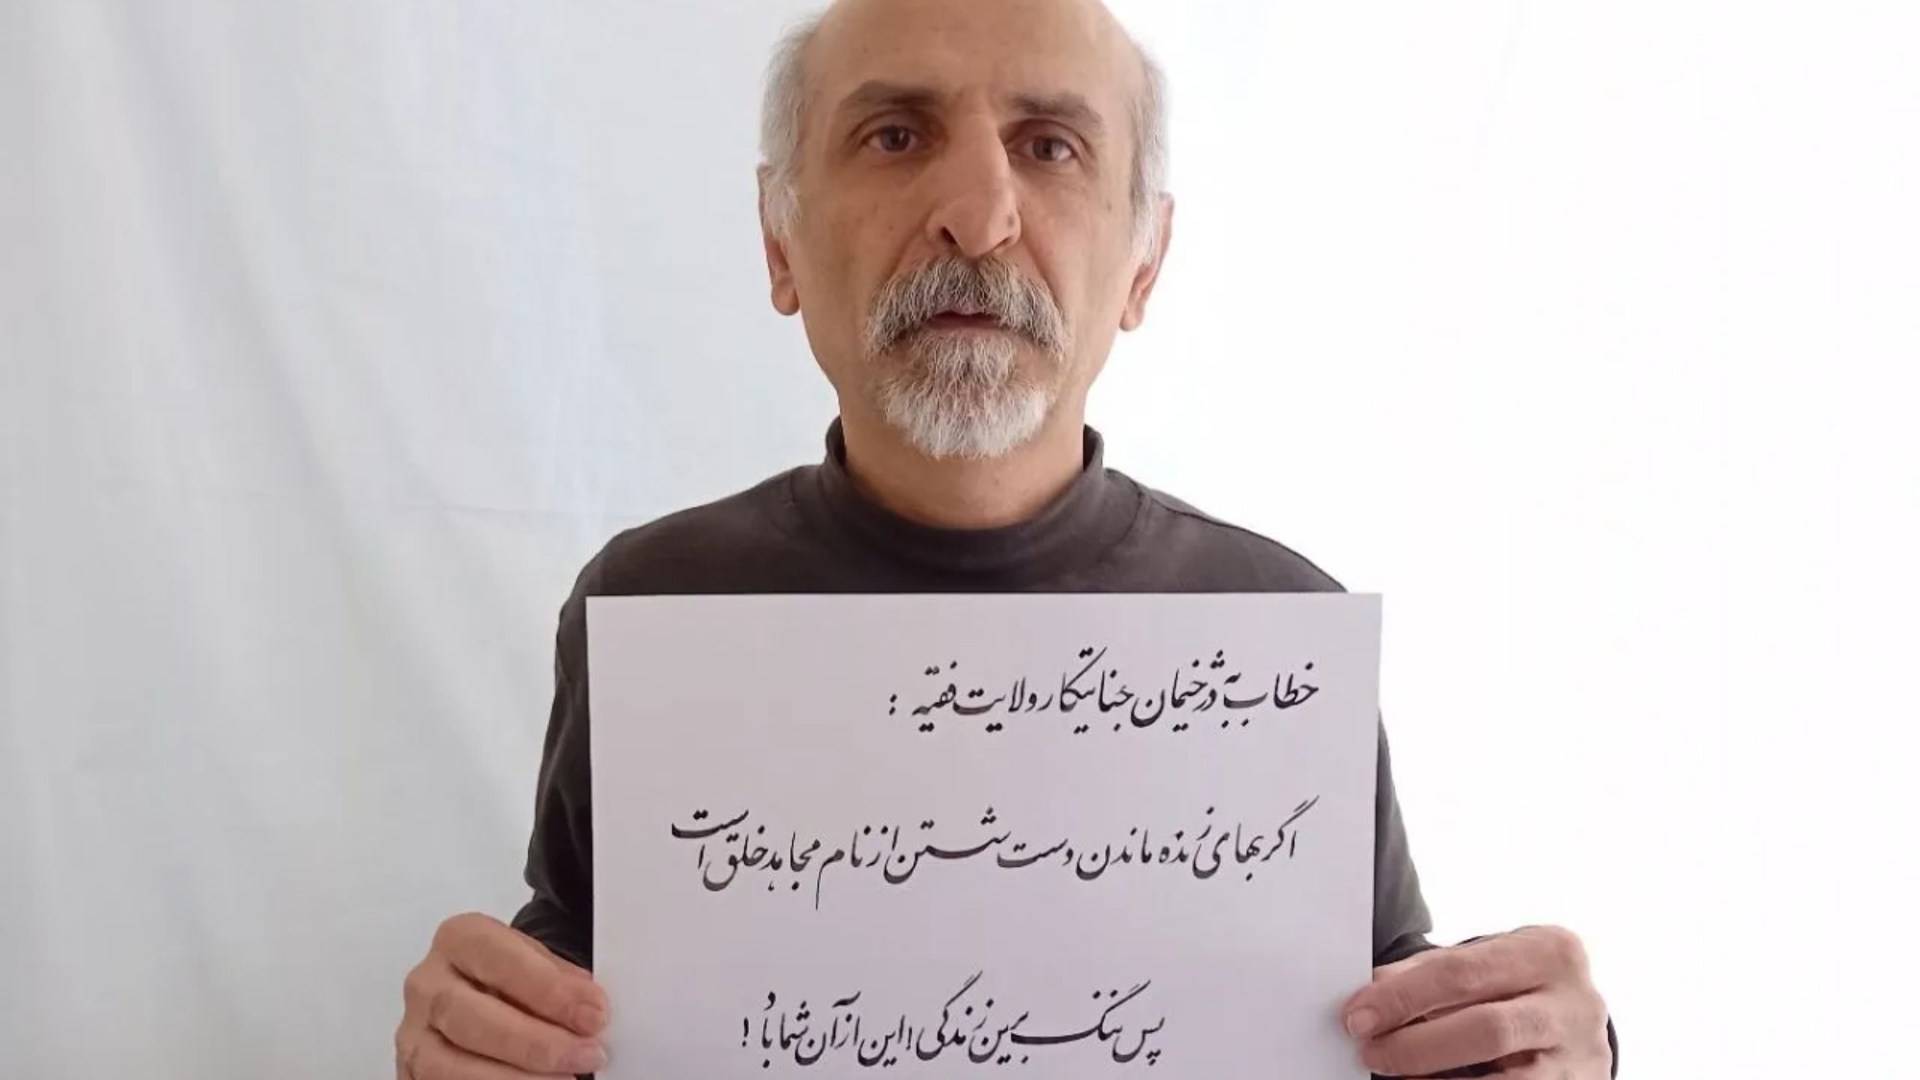 خطاب به دژخیمان جنایتکار ولایت فقیه :
اگر بهای زنده ماندن دست شستن از نام مجاهد خلق است
پس ننگ بر این زندگی! این از آن شما باد !